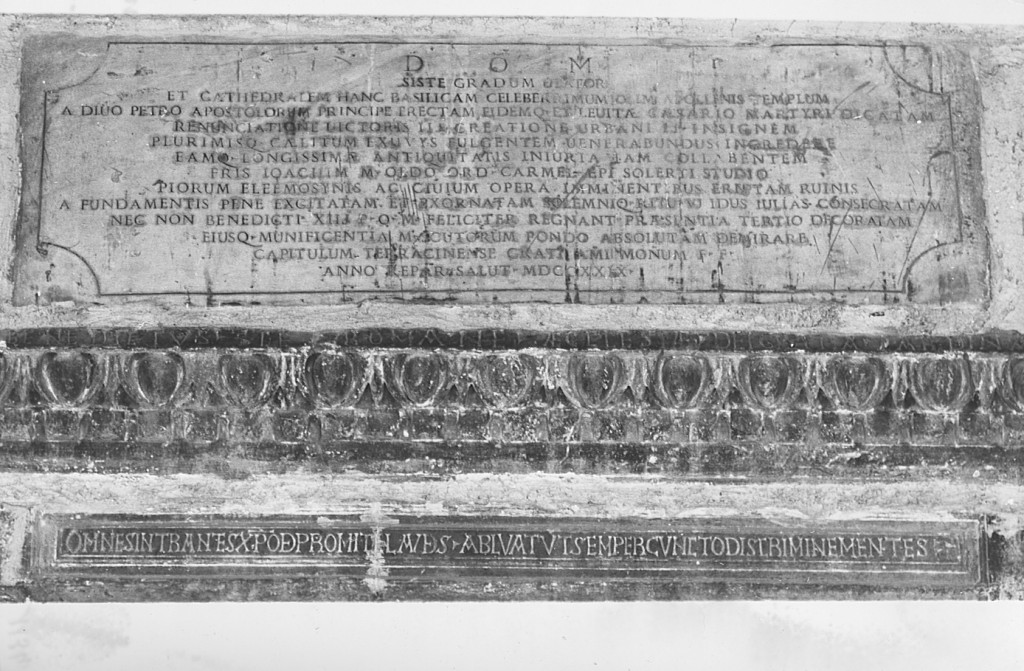 D O M
SISTE GRADUM UIATOR
ET CATHEDRALEM HANC BASILICAM CELEBERRIMUM OLIM APOLLINIS TEMPLUM
A DIUO PETRO APOSTOLORUM PRINCIPE ERECTAM EIDEMQ·ET LEUITÆ CÆSARIO MARTYRI DICATAM
RENUNCIATIONE UICTORIS III CREATIONE URBANI II INSIGNEM
PLURIMISQ CÆLITUM EXUVYS FULGENTEM UENERABUNDUS INGREDERE
EAMQ·LONGISSIMÆ ANTIQUITATIS INIURIA IAM COLLABENTEM
FRIS IOACHIM M·OLDO ORD·CARMEL·EPI SOLERTI STUDIO
PIORUM ELEEMOSYNIS AC CIUIUM OPERA IMMINENTIBUS EREPTAM RUINIS
A FUNDAMENTIS PENE EXCITATAM ET EXORNATAM SOLEMNIQ·RITU IDUS IULIAS CONSECRATAM
NEC NON BENEDICTI XIII P·O·M·FELICITER REGNANT·PRÆSENTIA TERTIO DECORATAM
EIUSQ·MUNIFICENTIA M SCUTORUM PONDO ABSOLUTAM DEMIRARE
CAPITULUM TERRACINENSE GRATI ANIMI MONUM P·F·
ANNO REPAR·SALUT·MDCCXXIX
OMNESINTRANTESXPODPROMITE LAUDES·ABLVATVTSEMPERCVNCTODISCRIMINEMENTES